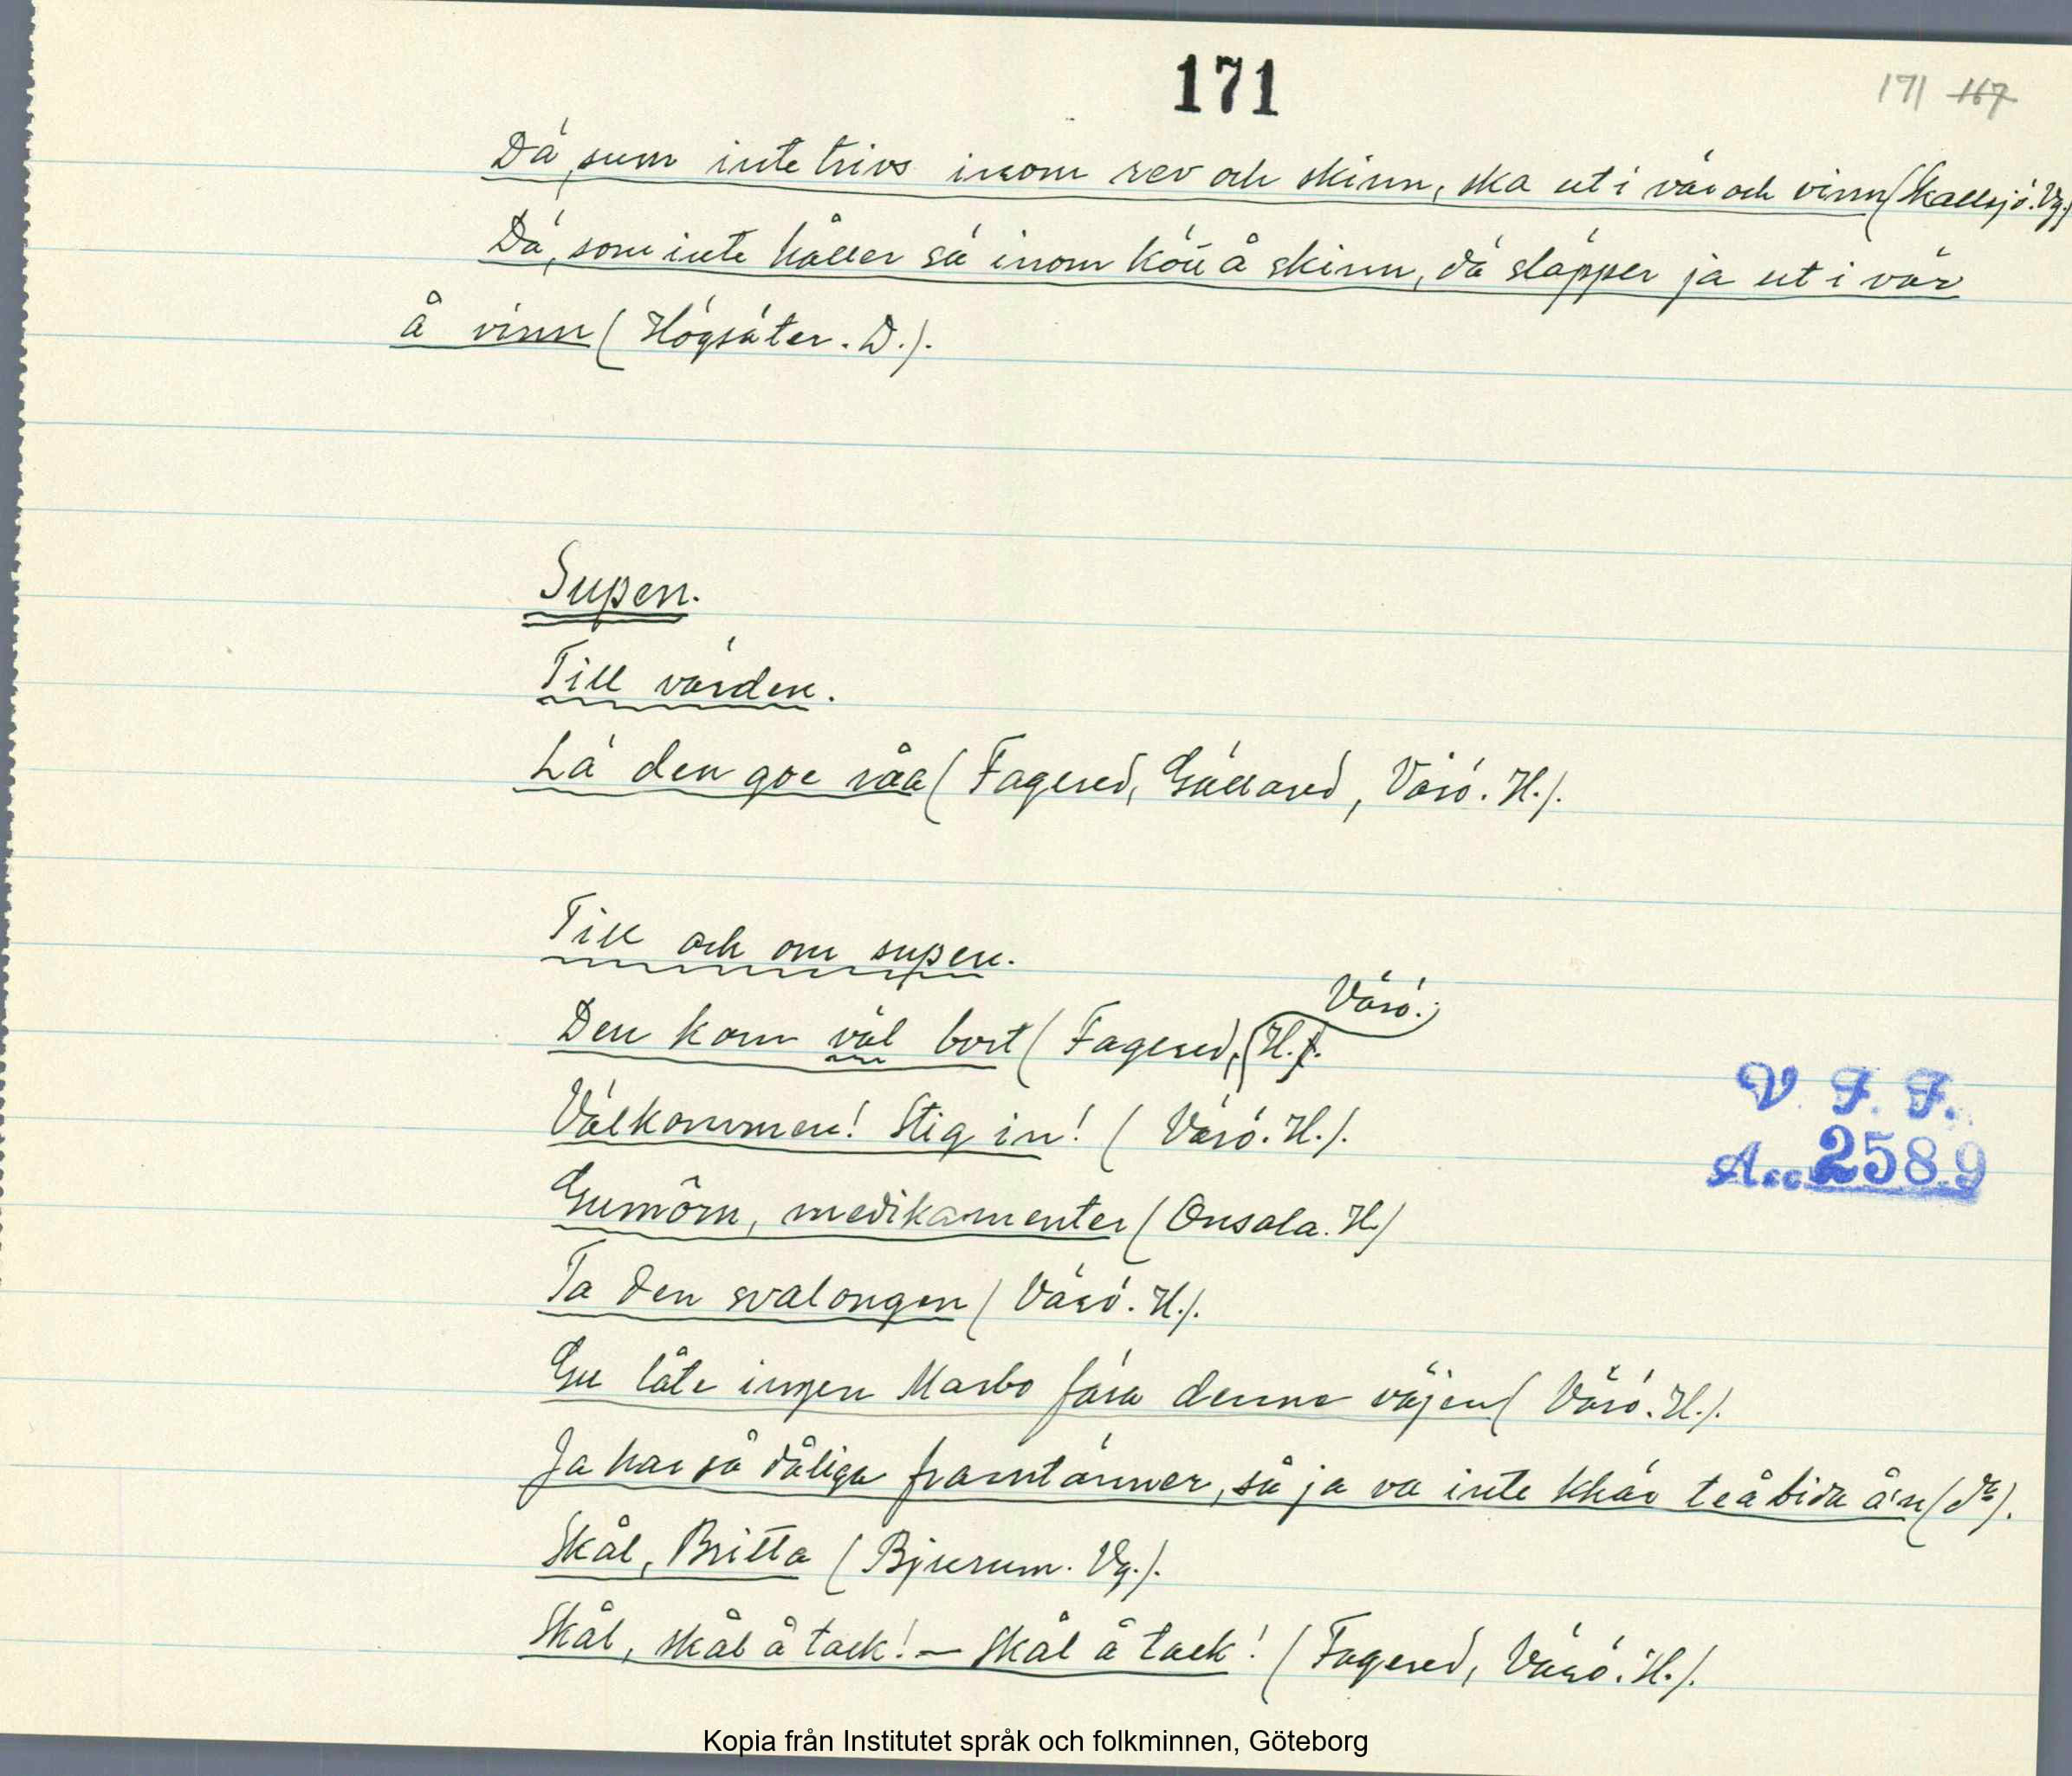 171
171 167
Dä, sum inte trivs inom rev och skinn, ska ut i vär och vinn (Skallsjö. Vg.)
Dä, som inte håller sä inom kött å skinn, dä släpper ja ut i vär
å vinn (Högsäter. D.).
Supen.
Till värden.
Lä den goe råa (Fagered, Gällared, Värö. H.).
Till och om supen.
Värö.
Den kom väl bort (Fagered, H.).
Välkommen! Stig in! (Värö. H.).
Gumôrn, medikamenter (Onsala. H.)
Ta den svalongen (Värö. H.).
Gu låte ingen Marbo fára denne väjen (Värö. H.).
Ja har så dåliga framtänner, så ja va inte khär te å bida å'n (do).
Skål, Britta (Bjurum. Vg.).
Skål, skål å tack! – Skål å tack! (Fagered, Värö. H.).
V. F. F.
Acc 2589
Kopia från Institutet språk och folkminnen, Göteborg